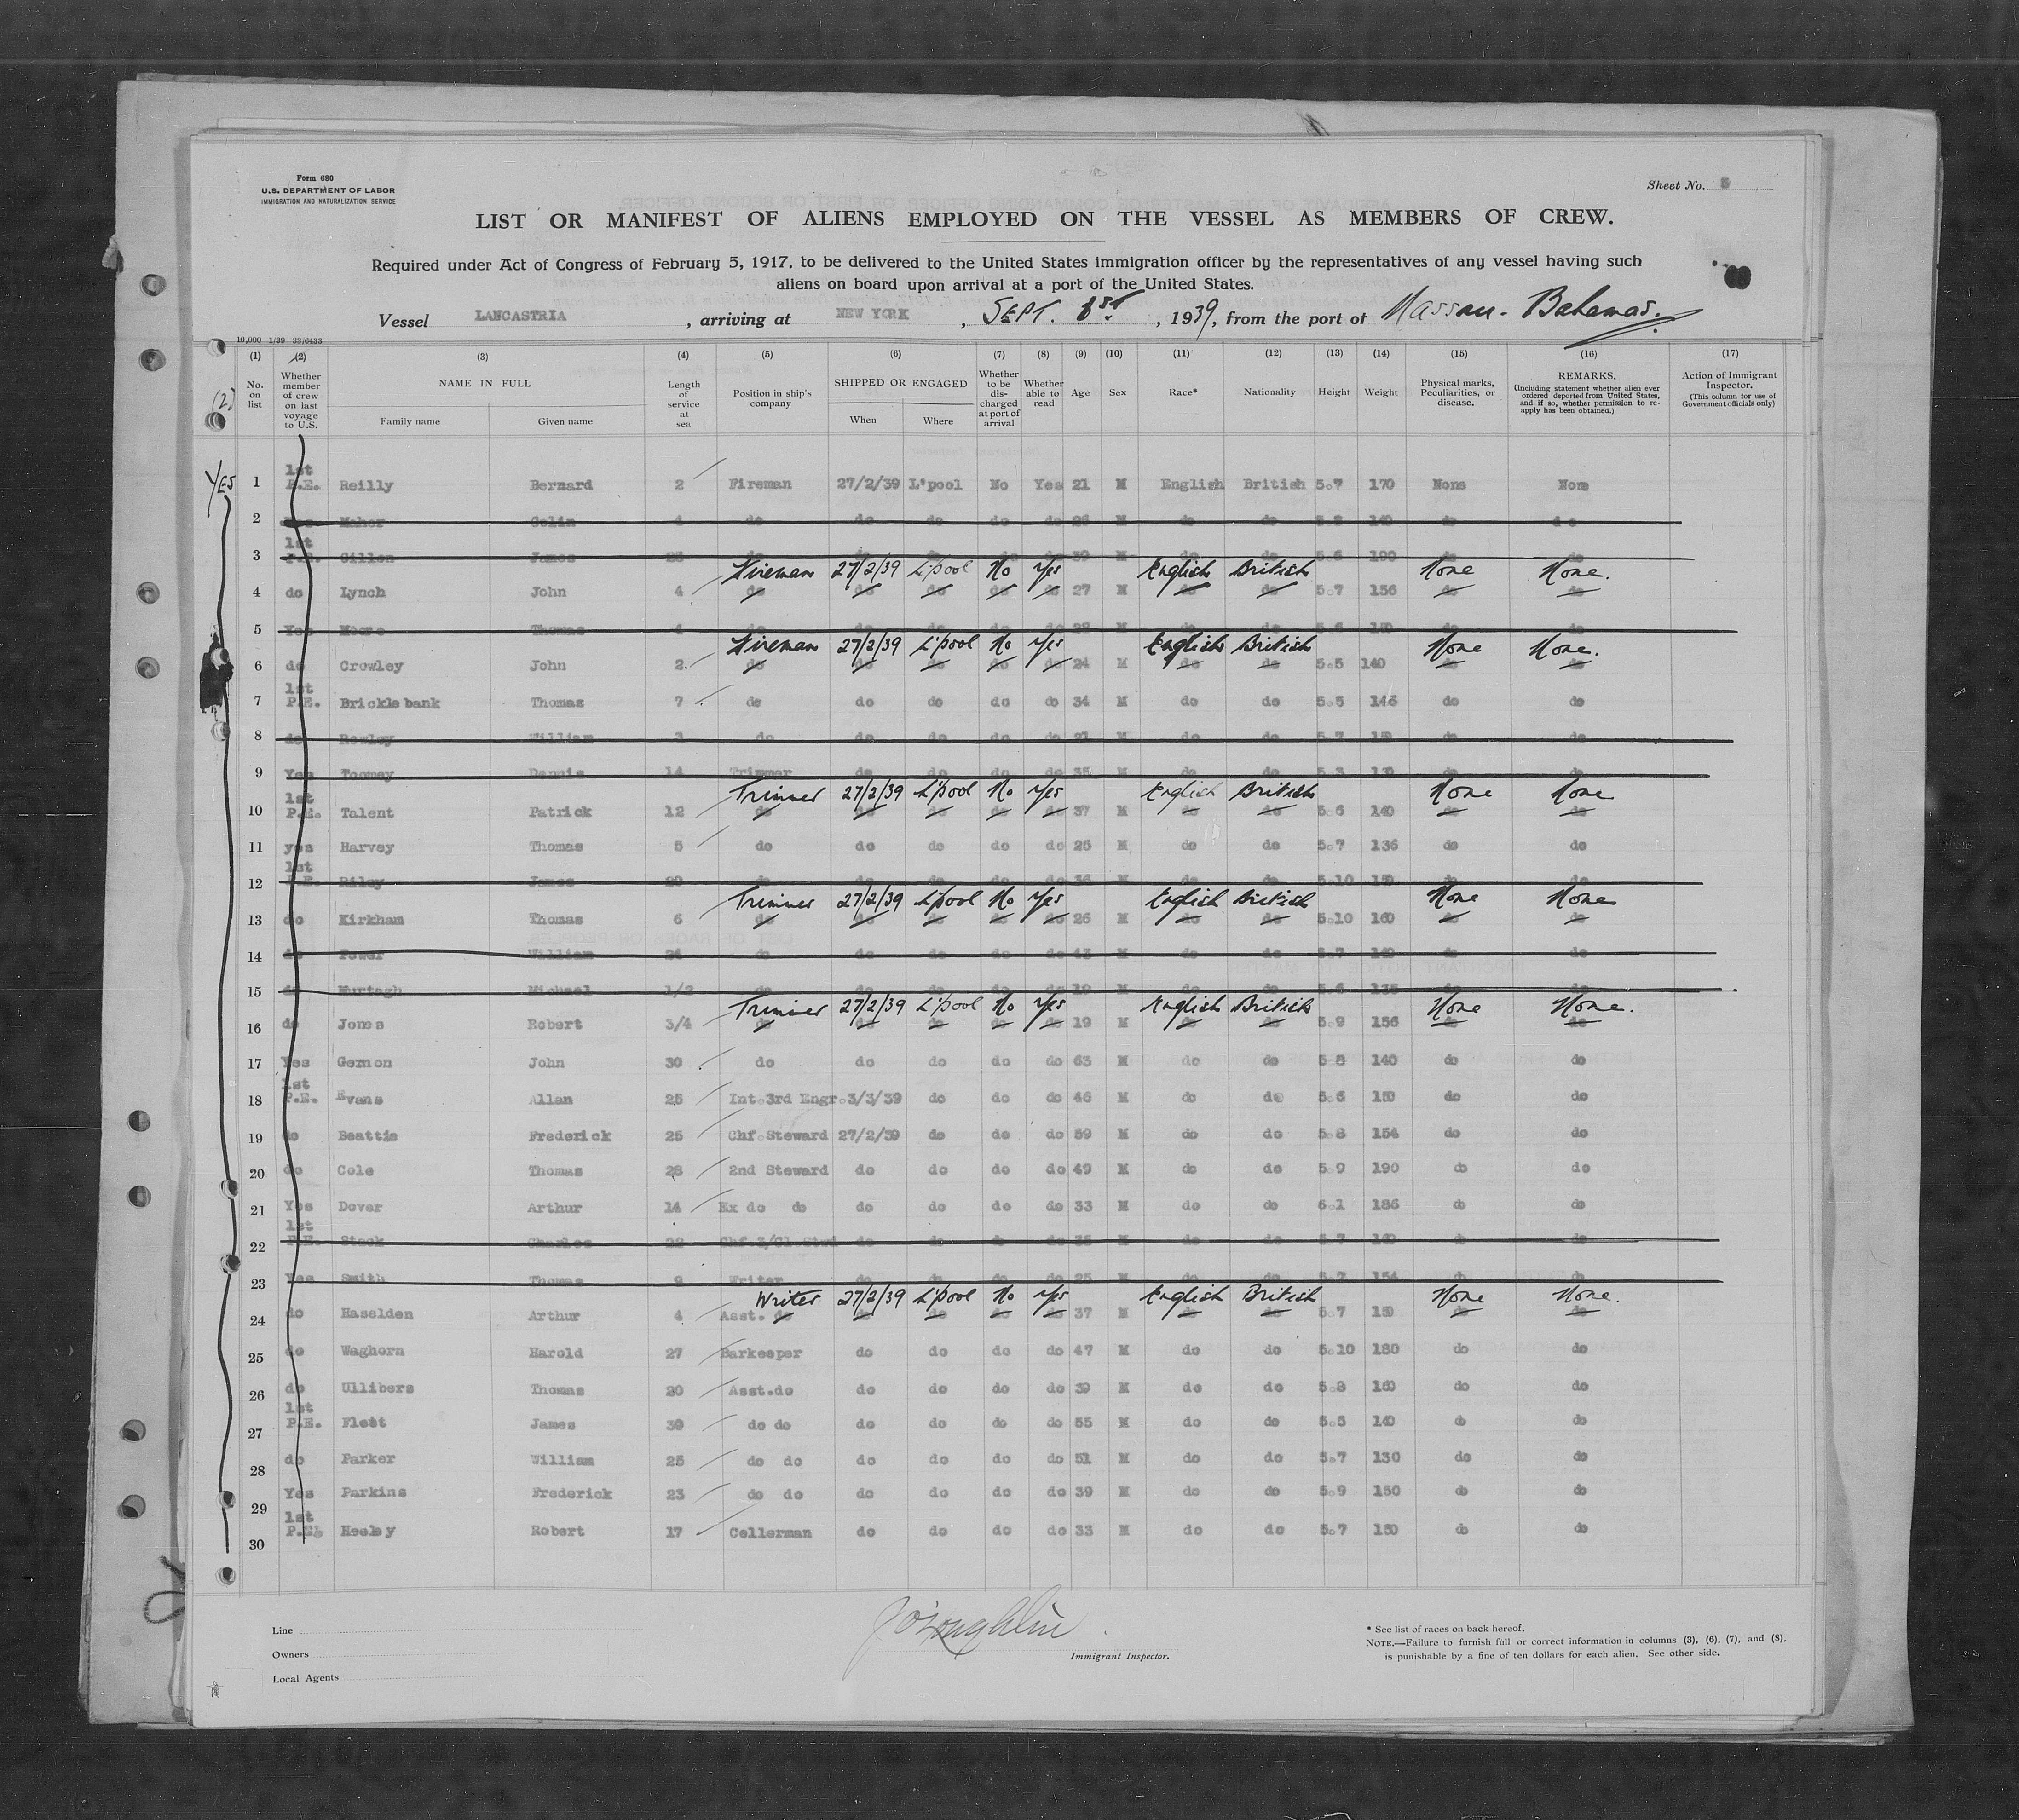 Form 680
U.S. DEPARTMENT OF LABOR
IMMIGRATION AND NATURALIZATION SERVICE
Sheet No. 5
LIST OR MANIFEST OF ALIENS EMPLOYED ON THE VESSEL AS MEMBERS OF CREW.
Required under Act of Congress of February 5, 1917, to be delivered to the United States immigration officer by the representatives of any vessel having such
aliens on board upon arrival at a port of the United States.
Vessel LANCASTRIA, arriving at NEW YORK, SEPT. 1st, 1939, from the port of Nassau - Bahamas.
10,000 1/39 33/6433
(1) (2) (3) (4) (5) (6) (7) (8) (9) (10) (11) (12) (13) (14) (15) (16) (17)
No. on list Whether member of crew on last voyage to U.S. NAME IN FULL Family name Given name Length of service at sea Position in ship's company SHIPPED OR ENGAGED When Where Whether to be discharged at port of arrival Whether able to read Age Sex Race* Nationality Height Weight Physical marks, Peculiarities, or disease. REMARKS. (Including statement whether alien ever ordered deported from United States, and if so, whether permission to reapply has been obtained.) Action of Immigrant Inspector. (This column for use of Government officials only)
(2)
YES
1 1st P.E. Reilly Bernard 2 Fireman 27/2/39 L'pool No Yes 21 M English British 5.7 170 None None
2 Maher Colin 4 do do do do do 26 M do do 5.8 140 do do
3 1st P.E. Gillen James 23 do do do do do 39 M do do 5.6 190 do do
Fireman 27/2/39 L'pool No Yes English British None None.
4 do Lynch John 4 do do do do do 27 M do do 5.7 156 do do
5 Yes Moore Thomas 4 do do do do do 28 M do do 5.6 150 do do
Fireman 27/2/39 L'pool No Yes English British None None.
6 do Crowley John 2 do do do do do 24 M do do 5.5 140 do do
7 1st P.E. Bricklebank Thomas 7 do do do do do 34 M do do 5.5 146 do do
8 do Rowley William 3 do do do do do 21 M do do 5.7 150 do do
9 Yes Toomey Dennis 14 Trimmer do do do do 35 M do do 5.3 130 do do
Trimmer 27/2/39 L'pool No Yes English British None None
10 1st P.E. Talent Patrick 12 do do do do do 37 M do do 5.6 140 do do
11 yes Harvey Thomas 5 do do do do do 25 M do do 5.7 136 do do
12 1st P.E. Riley James 20 do do do do do 36 M do do 5.10 150 do do
Trimmer 27/2/39 L'pool No Yes English British None None
13 do Kirkham Thomas 6 do do do do do 26 M do do 5.10 160 do do
14 do Power William 24 do do do do do 43 M do do 5.7 140 do do
15 do Murtagh Michael 1/2 do do do do do 19 M do do 5.6 135 do do
Trimmer 27/2/39 L'pool No Yes English British None None.
16 do Jones Robert 3/4 do do do do do 19 M do do 5.9 156 do do
17 Yes Gernon John 30 do do do do do 63 M do do 5.8 140 do do
18 1st P.E. Evans Allan 25 Int.3rd Engr. 3/3/39 do do do 46 M do do 5.6 150 do do
19 do Beattie Frederick 25 Chf.Steward 27/2/39 do do do 59 M do do 5.8 154 do do
20 do Cole Thomas 28 2nd Steward do do do do 49 M do do 5.9 190 do do
21 Yes Dover Arthur 14 Ex do do do do do do 33 M do do 6.1 186 do do
22 1st P.E. Stack Charles 22 Chf.3/Cl.Stwd do do do do 35 M do do 5.7 160 do do
23 Yes Smith Thomas 9 Writer do do do do 25 M do do 5.7 154 do do
Writer 27/2/39 L'pool No Yes English British None None.
24 do Haselden Arthur 4 Asst. do do do do do 37 M do do 5.7 150 do do
25 do Waghorn Harold 27 Barkeeper do do do do 47 M do do 5.10 180 do do
26 do Ullibers Thomas 20 Asst.do do do do do 39 M do do 5.8 160 do do
27 1st P.E. Flett James 30 do do do do do do 55 M do do 5.5 140 do do
28 do Parker William 25 do do do do do do 51 M do do 5.7 130 do do
29 Yes Parkins Frederick 23 do do do do do do 39 M do do 5.9 150 do do
30 1st P.E. Heeley Robert 17 Cellerman do do do do 33 M do do 5.7 150 do do
Line
Owners
Local Agents
J O'Loughlin
Immigrant Inspector.
* See list of races on back hereof.
NOTE.—Failure to furnish full or correct information in columns (3), (6), (7), and (8),
is punishable by a fine of ten dollars for each alien. See other side.